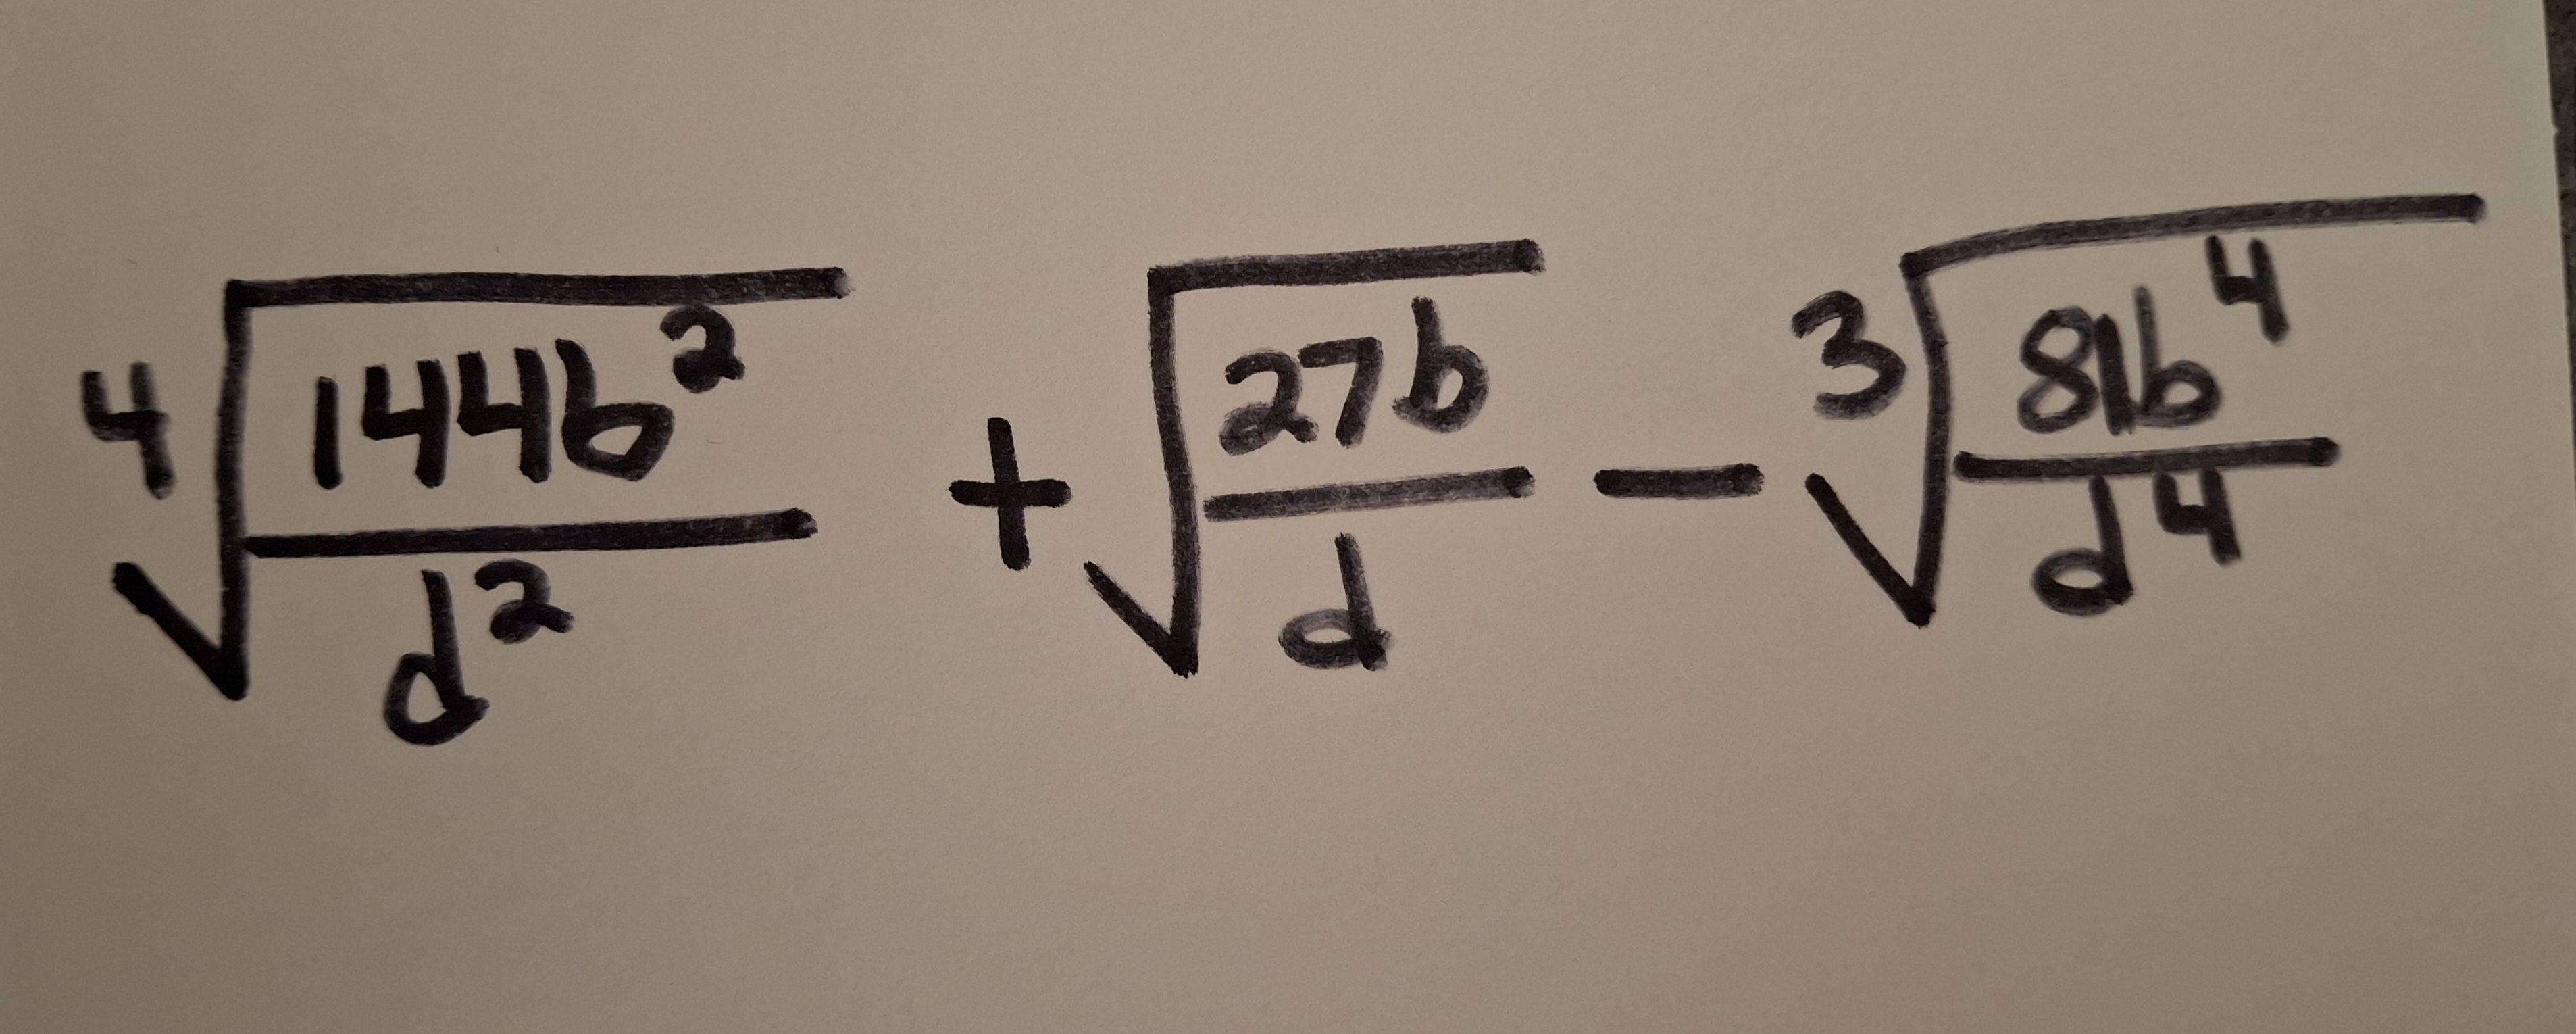 \sqrt[4]{\frac{144b^2}{d^2}} + \sqrt{\frac{27b}{d}} - \sqrt[3]{\frac{81b^4}{d^4}}